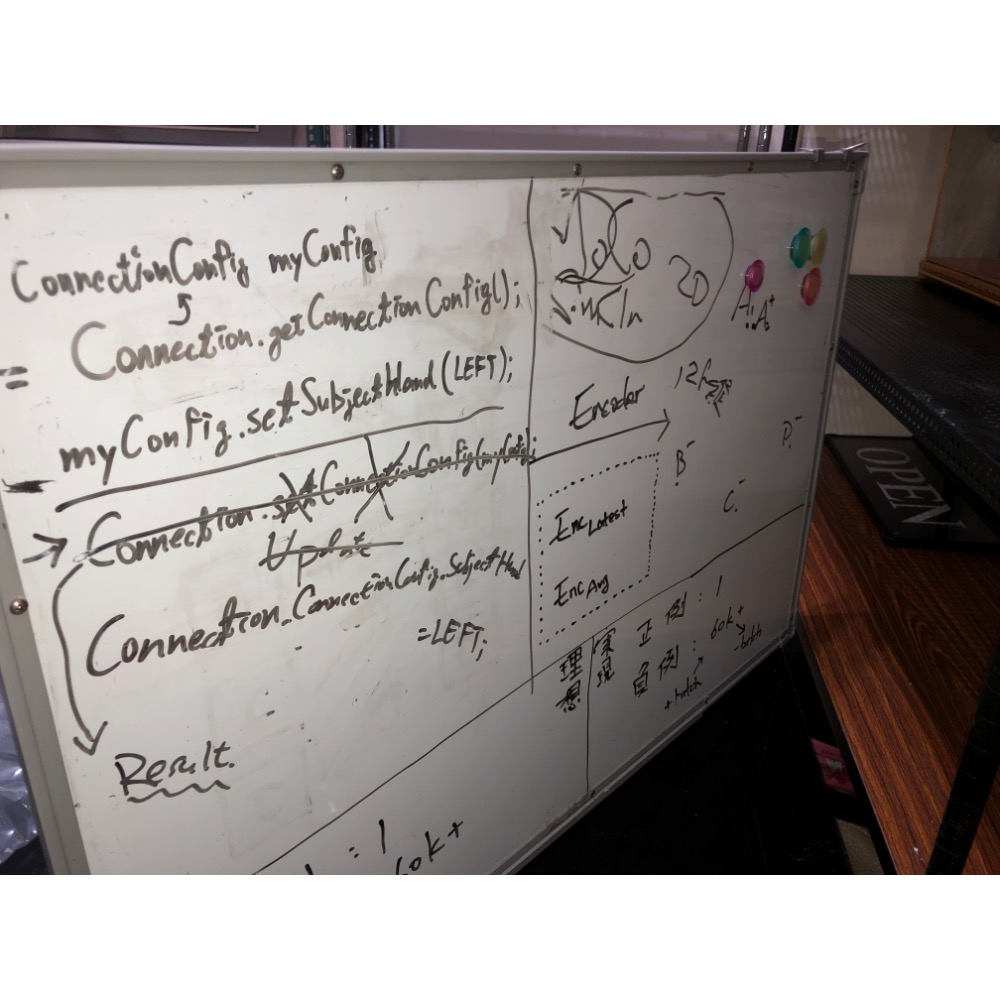 ConnectionConfig myConfig
= Connection.getConnectionConfig();
myConfig.setSubjectHand(LEFT);
→ Connection.set ConnectionConfig(myConfig);
Update
Connection.ConnectionConfig.SubjectHand
=LEFT;
Result.
: 1
60k+
2D
A: A⁺
Encoder
B⁻
D.⁻
C.⁻
Enc Latest
Enc Avg
理想
実現
正例: 1
負例: 60k+
+ batch
- batch
OPEN